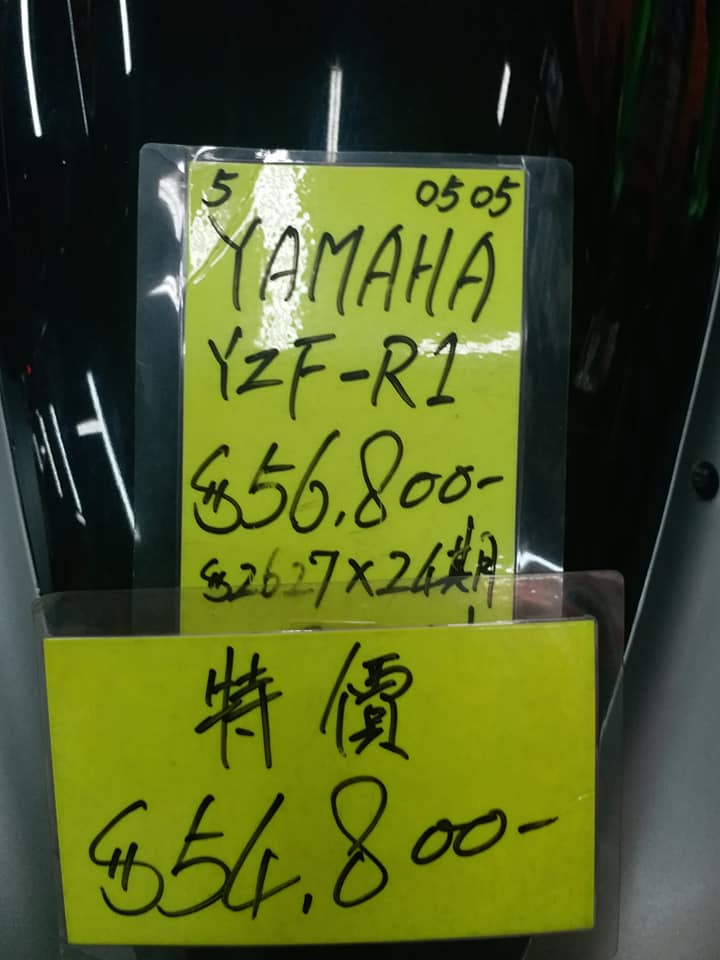 5 0505
YAMAHA
YZF-R1
$56,800-
$2627×24期
特價
$54,800-